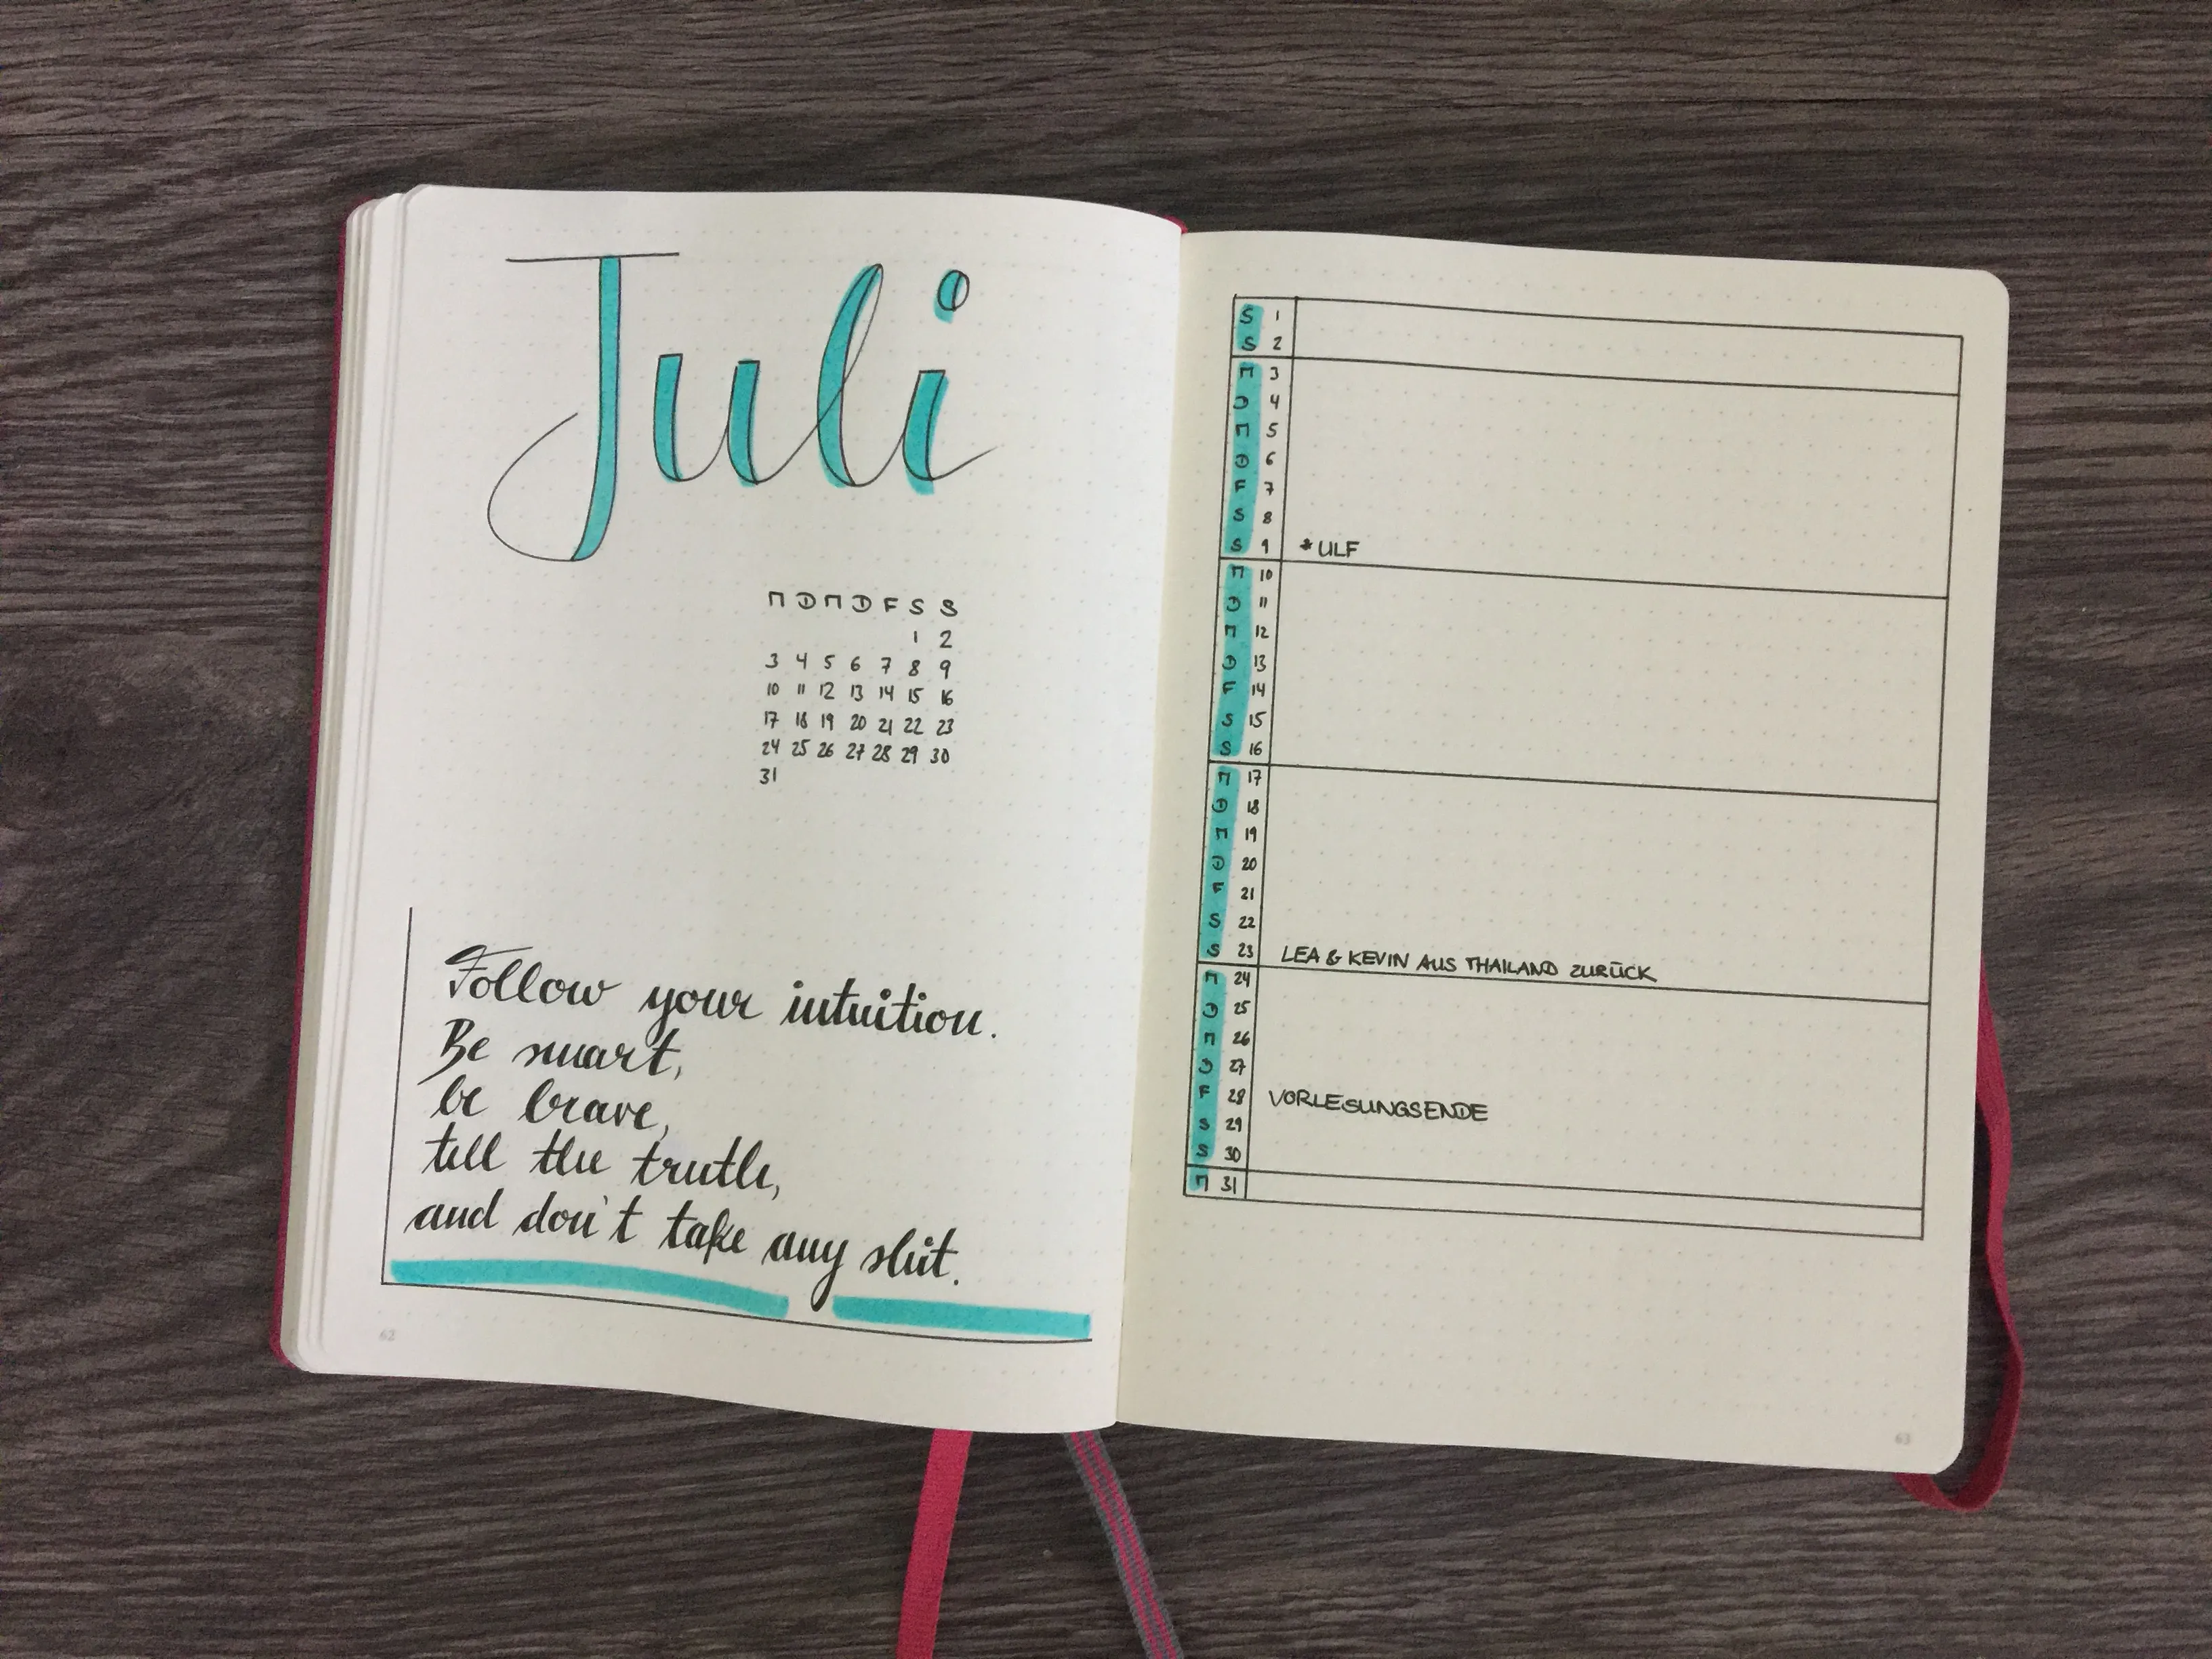 Juli
M D M D F S S
1 2
3 4 5 6 7 8 9
10 11 12 13 14 15 16
17 18 19 20 21 22 23
24 25 26 27 28 29 30
31
Follow your intuition.
Be smart,
be brave,
tell the truth,
and don't take any shit.
62
S 1
S 2
M 3
D 4
M 5
D 6
F 7
S 8
S 9 * ULF
M 10
D 11
M 12
D 13
F 14
S 15
S 16
M 17
D 18
M 19
D 20
F 21
S 22
S 23 LEA & KEVIN AUS THAILAND ZURÜCK
M 24
D 25
M 26
D 27
F 28 VORLESUNGSENDE
S 29
S 30
M 31
63